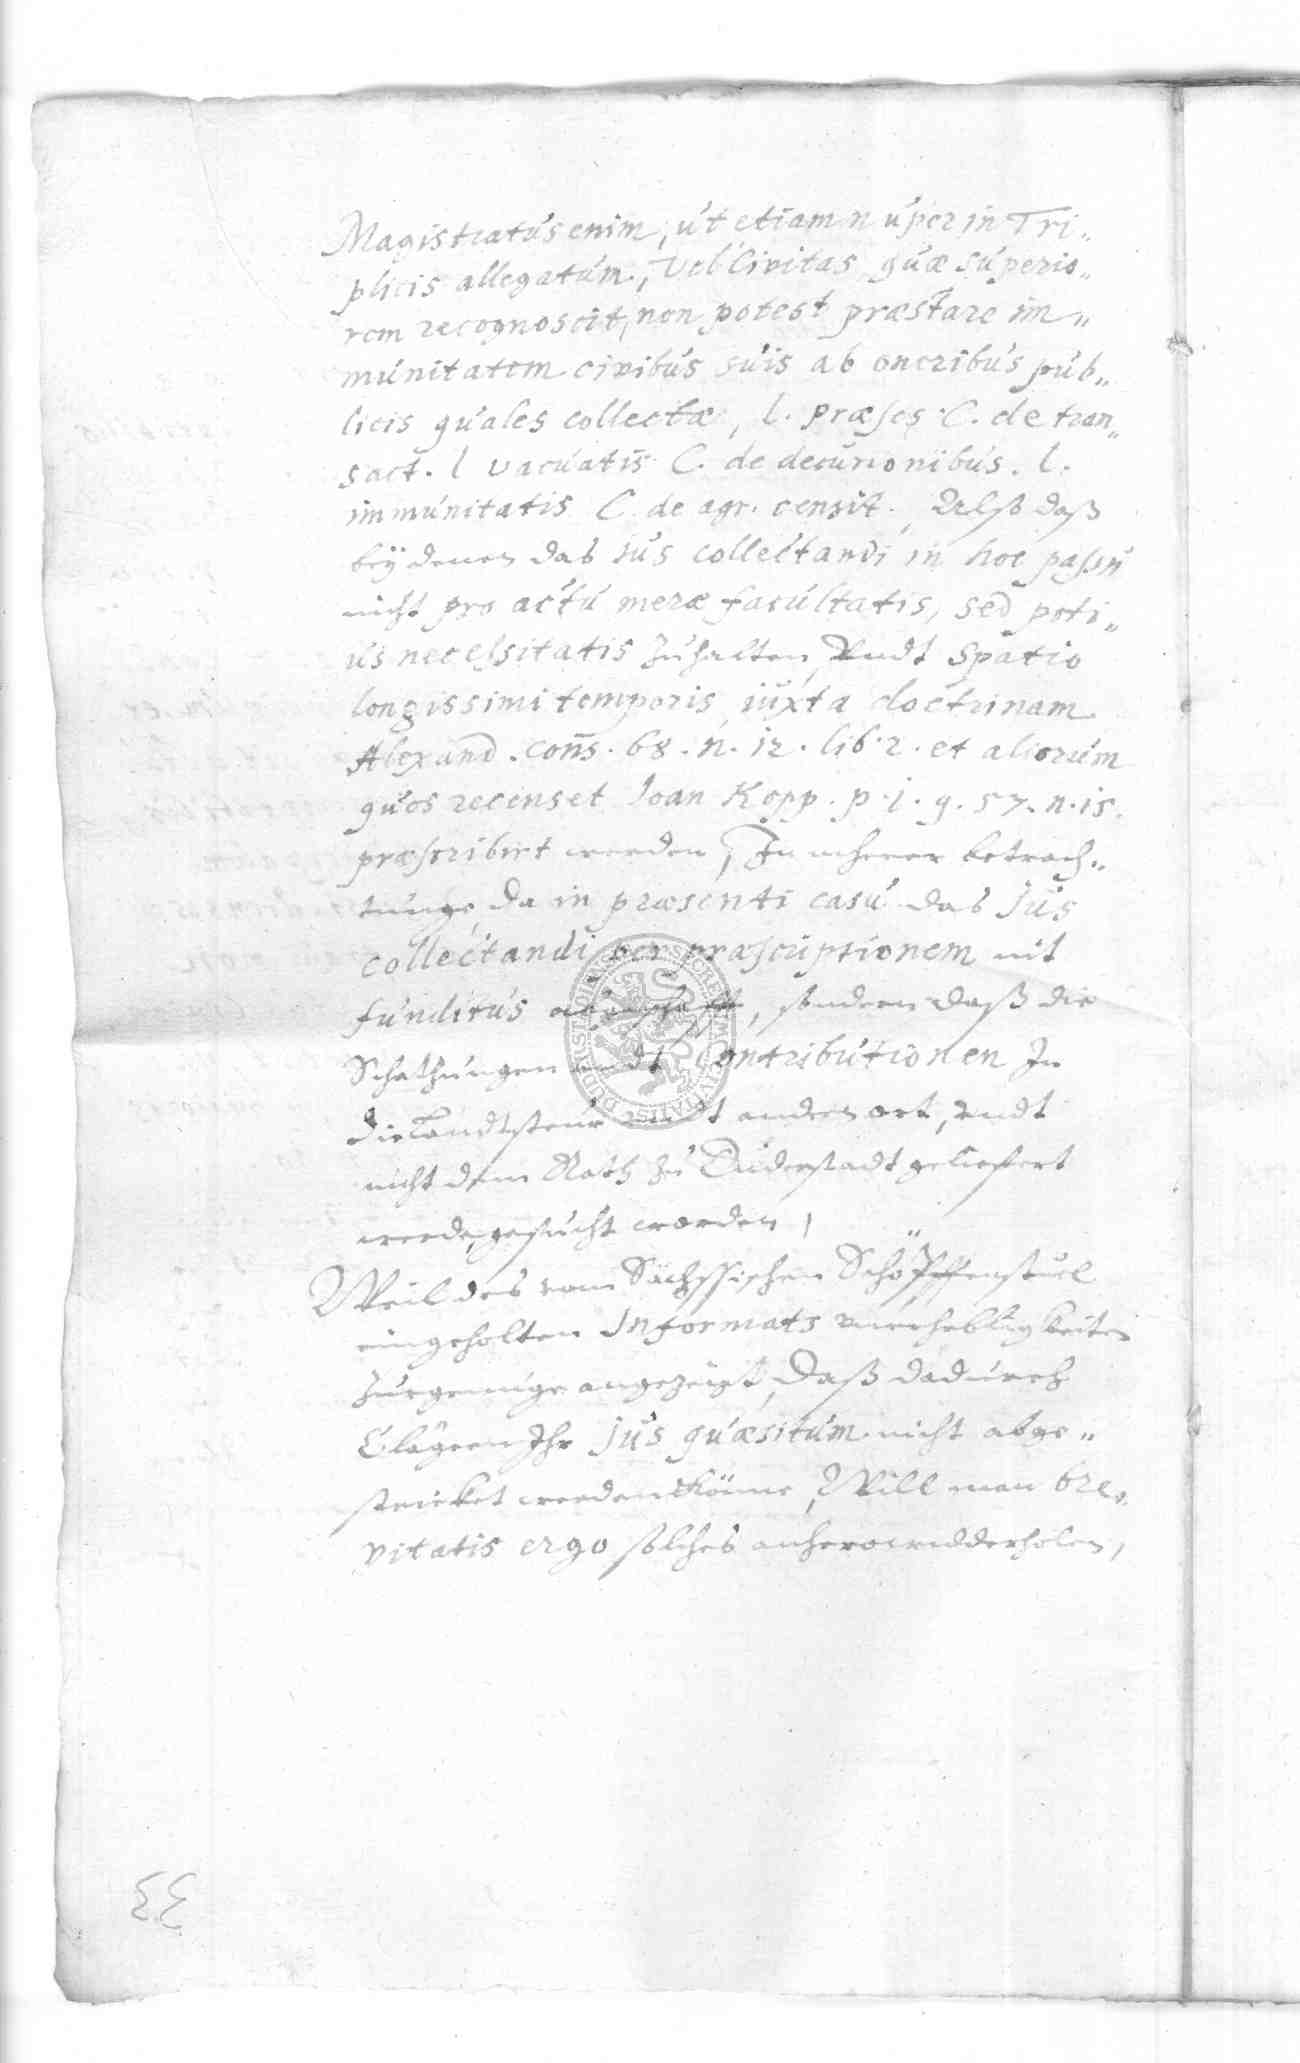 Magistratus enim, ut etiam nuper in Tri„
plicis allegatum, vel Civitas quæ superio„
rem recognoscit, non potest præstare im„
munitatem civibus suis ab oneribus pub„
licis quales collectæ, l. præses C. de tran„
sact. l vacuatis C. de decurionibus. l.
immunitatis C. de agr. censit. Alsß daß
beÿ denen das Jus collectandi in hoc passu
nicht pro actu meræ facultatis, sed poti„
us necessitatis zuhalten, vndt spatio
longissimi temporis iuxta doctrinam
Alexand. cons. 68. n. 12. lib. 2. et aliorum
quos recenset Joan Kopp. p. 1. q. 57. n. 15.
præscribirt werden, In mherer betrach„
tunge, da in præsenti casu das Jus
collectandi per præscriptionem nit
funditus, sondern daß die
Schatzungen vndt Contributionen In
die Landtsteur vndt andern ort, vndt
nicht dem Rath zu Duderstadt geliefert
werde, gesucht worden,
Weil des vom Sächssischen Schöpffenstuel
eingeholten Informats vnerhebligkeiten
zur genuge angezeigt, Daß dadurch
Clägern Ihr Jus quæsitum nicht abge„
stricket werden könne, Will man bre„
vitatis ergo solches anhero widderholen,